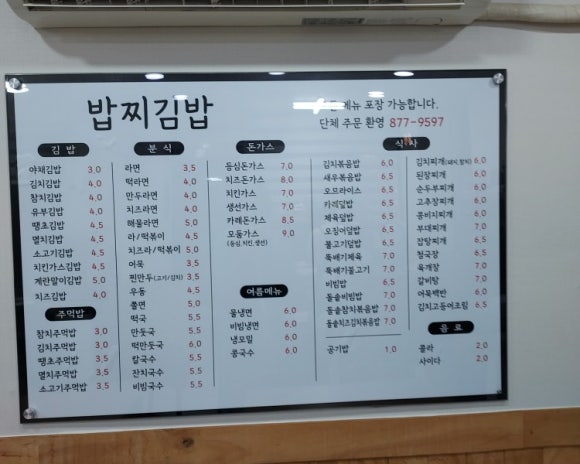 밥찌김밥
메뉴 포장 가능합니다.
단체 주문 환영 877-9597
김 밥
야채김밥 3,0
김치김밥 4,0
참치김밥 4,0
유부김밥 4,0
땡초김밥 4,5
멸치김밥 4,5
소고기김밥 4,5
치킨가스김밥 4,5
계란말이김밥 5,0
치즈김밥 4,0
주먹밥
참치주먹밥 3,0
김치주먹밥 3,0
땡초주먹밥 3,5
멸치주먹밥 3,5
소고기주먹밥 3,5
분 식
라면 3,5
떡라면 4,0
만두라면 4,0
치즈라면 4,0
해물라면 5,0
라/떡볶이 4,5
치즈라/떡볶이 5,0
어묵 3,5
찐만두(고기/김치) 3,5
우동 4,5
쫄면 5,0
떡국 5,5
만둣국 5,5
떡만둣국 6,0
칼국수 5,5
잔치국수 5,5
비빔국수 5,5
돈가스
등심돈가스 7,0
치즈돈가스 8,0
치킨가스 7,0
생선가스 7,0
카레돈가스 8,5
모둠가스 9,0
(등심,치킨,생선)
여름메뉴
물냉면 6,0
비빔냉면 6,0
냉모밀 6,0
콩국수 6,0
식 사
김치볶음밥 6,0
새우볶음밥 6,5
오므라이스 6,5
카레덮밥 6,5
제육덮밥 6,5
오징어덮밥 6,5
불고기덮밥 6,5
뚝배기제육 7,0
뚝배기불고기 7,0
비빔밥 6,5
돌솥비빔밥 7,0
돌솥참치볶음밥 7,0
돌솥치즈김치볶음밥 7,0
공기밥 1,0
김치찌개(돼지,참치) 6,0
된장찌개 6,0
순두부찌개 6,0
고추장찌개 6,0
콩비지찌개 6,0
부대찌개 7,0
잡탕찌개 6,5
청국장 6,5
육개장 7,0
갈비탕 7,0
어묵백반 6,0
김치고등어조림 6,5
음 료
콜라 2,0
사이다 2,0